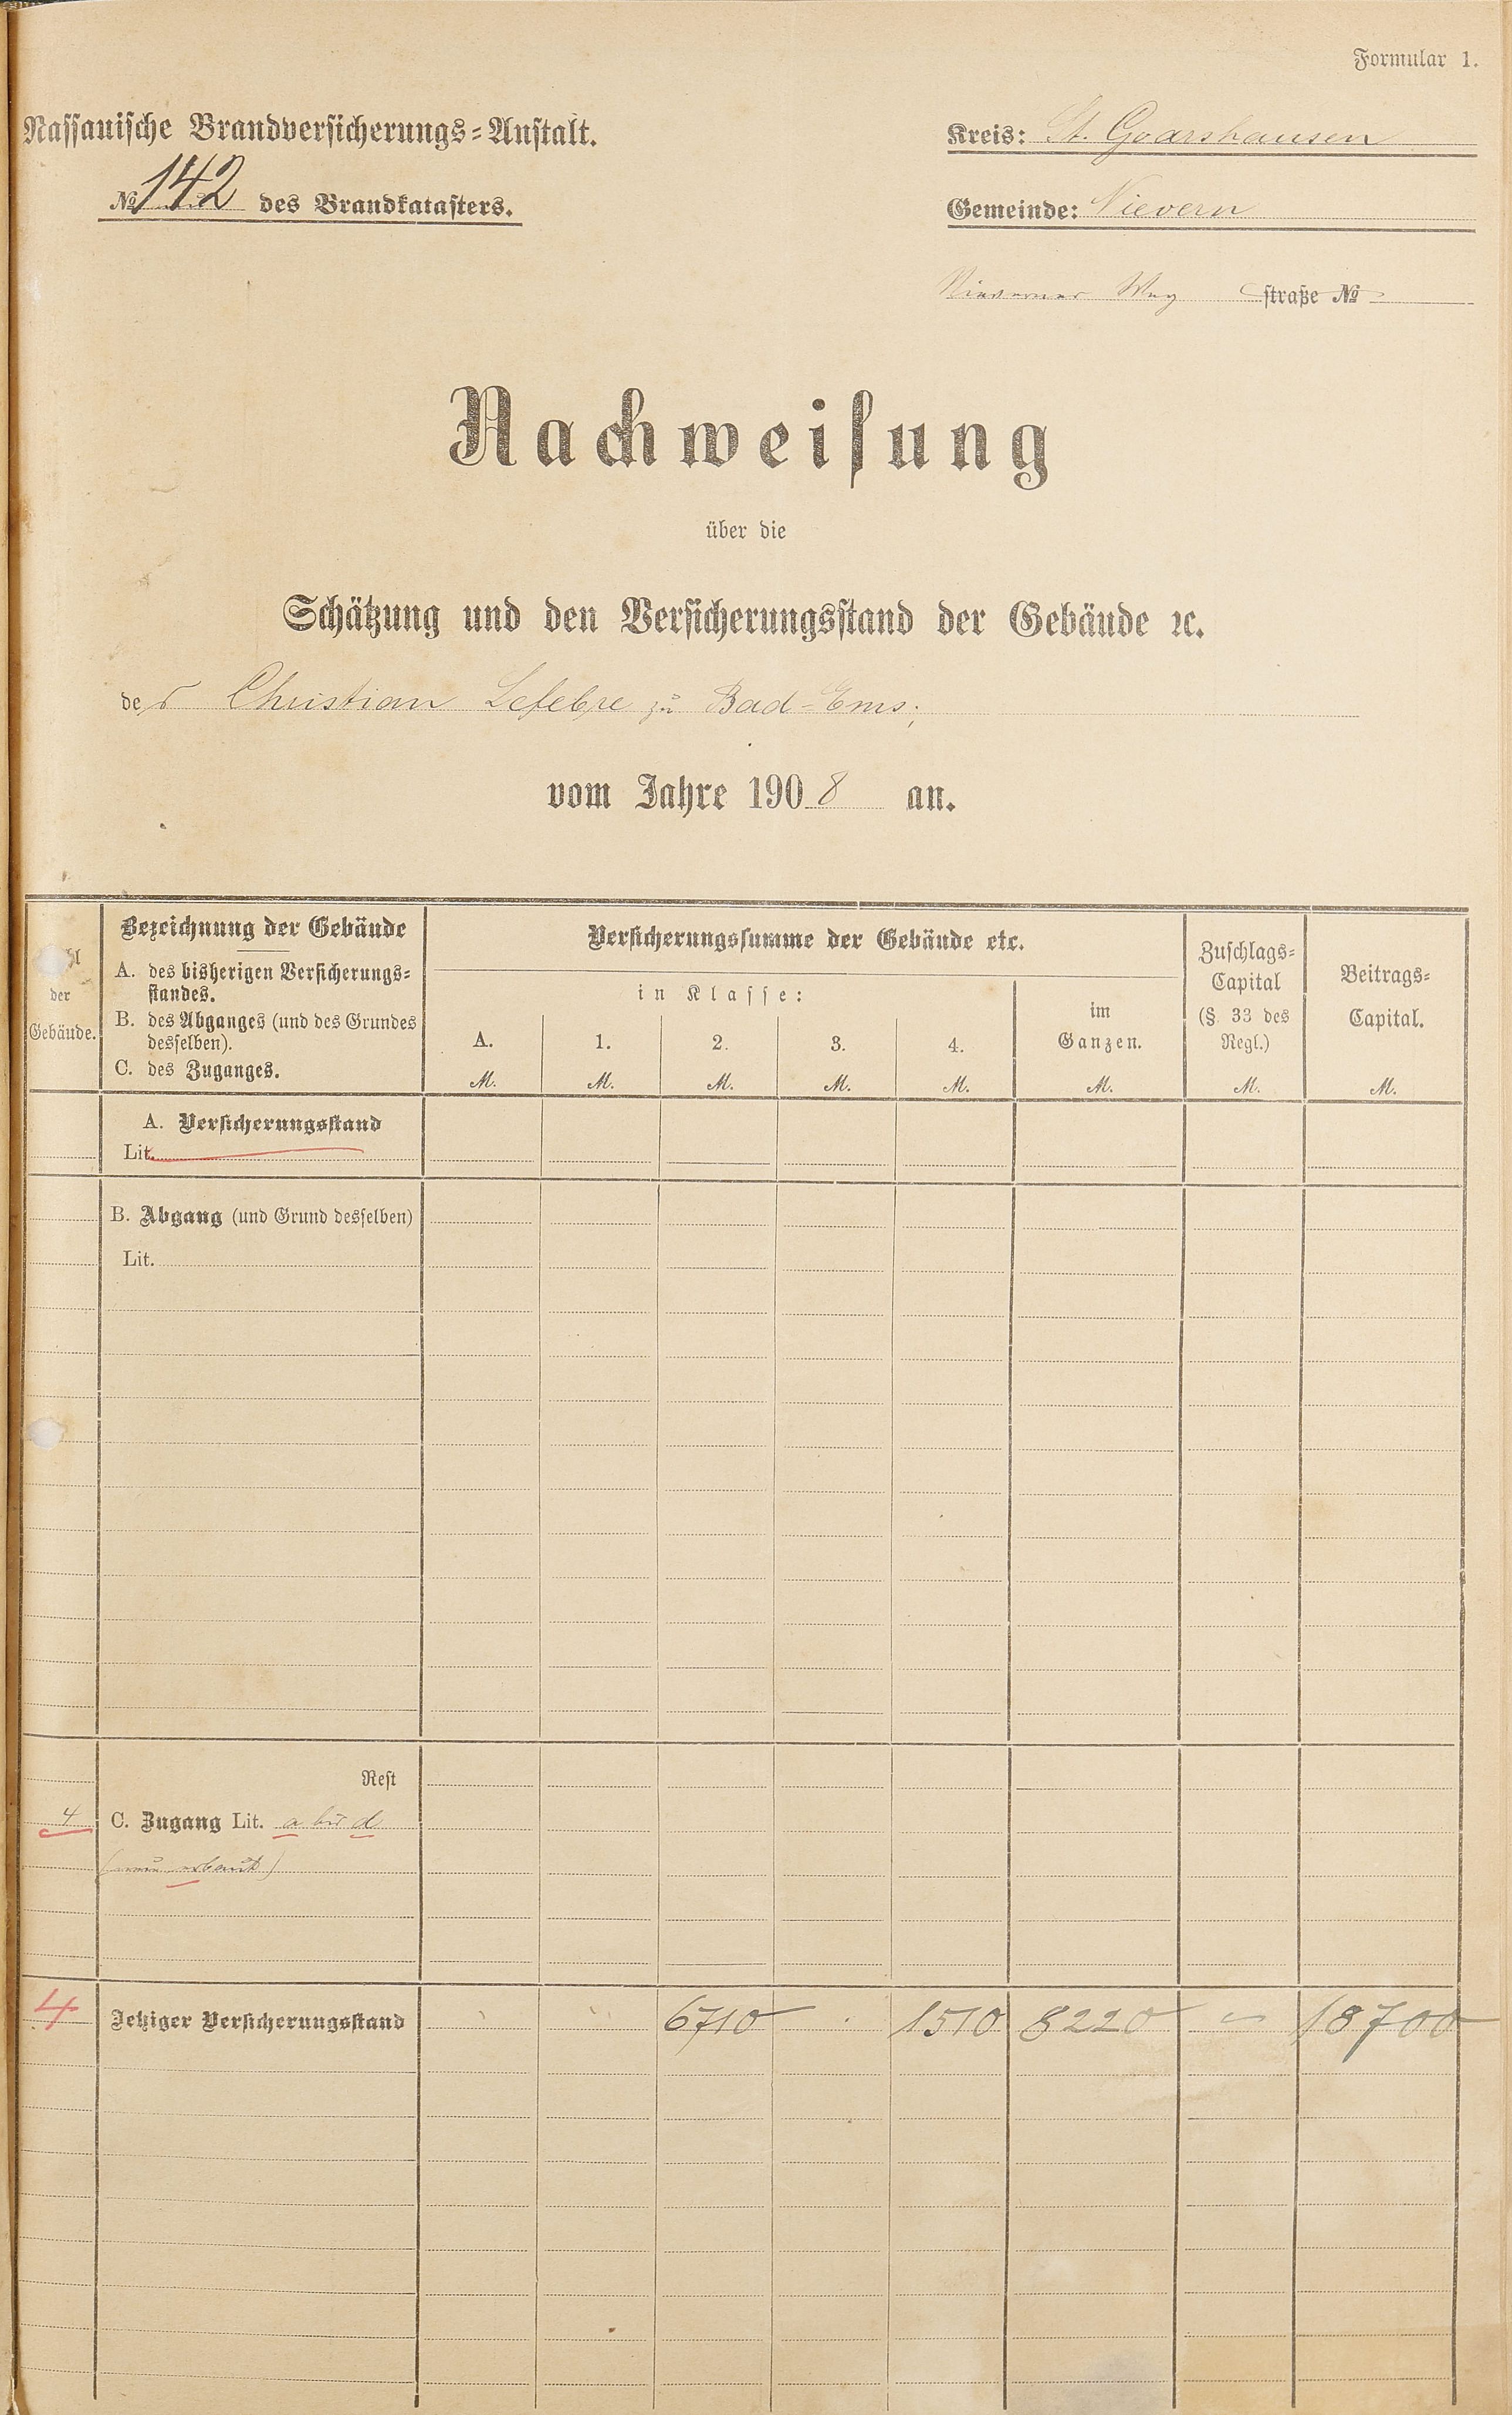 Formular 1.
Nassauische Brandversicherungs-Anstalt.
№ 142 des Brandkatasters.
Kreis: St. Goarshausen
Gemeinde: Nievern
Nieverner Weg straße №
Nachweisung
über die
Schätzung und den Versicherungsstand der Gebäude ꝛc.
der Christian Lefebre zu Bad-Ems;
vom Jahre 1908 an.
der
Gebäude.
Bezeichnung der Gebäude
A. des bisherigen Versicherungs-
standes.
B. des Abganges (und des Grundes
desselben).
C. des Zuganges.
Versicherungssumme der Gebäude etc.
in Klasse:
A. 1. 2. 3. 4.
M. M. M. M. M.
im
Ganzen.
M.
Zuschlags-
Capital
(§. 33 des
Regl.)
M.
Beitrags-
Capital.
M.
A. Versicherungsstand
Lit.
B. Abgang (und Grund desselben)
Lit.
Rest
4 C. Zugang Lit. a bis d
(neu erbaut)
4 Jetziger Versicherungsstand 6710 1510 8220 18700